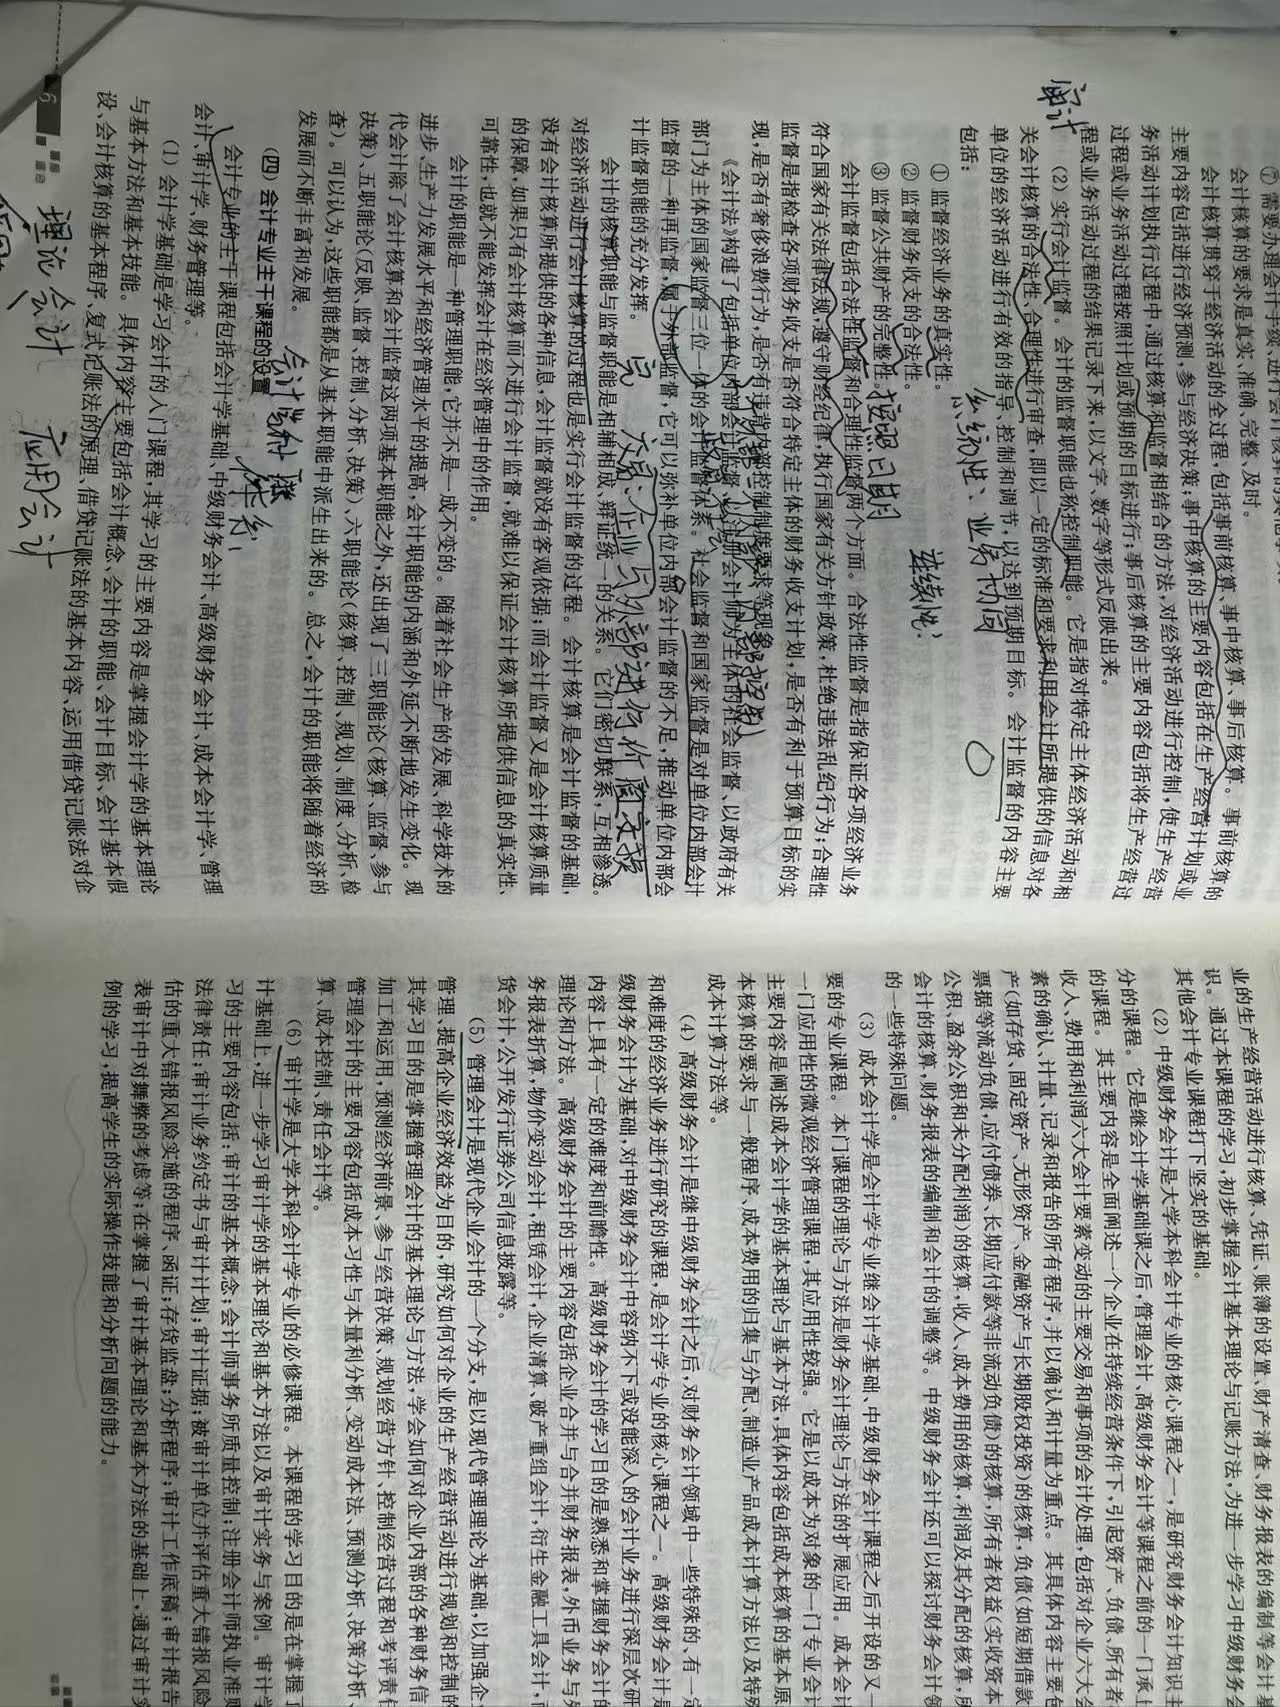 ⑦ 需要办理会计手续、进行会计核算的其他
会计核算的要求是真实、准确、完整、及时。
会计核算贯穿于经济活动的全过程，包括事前核算、事中核算、事后核算。事前核算的
主要内容包括进行经济预测，参与经济决策；事中核算的主要内容包括在生产经营计划或业
务活动计划执行过程中，通过核算和监督相结合的方法，对经济活动进行控制，使生产经营
过程或业务活动过程按照计划或预期的目标进行；事后核算的主要内容包括将生产经营过
程或业务活动过程的结果记录下来，以文字、数字等形式反映出来。
审计
（2）实行会计监督。会计的监督职能也称控制职能。它是指对特定主体经济活动和相
关会计核算的合法性、合理性进行审查，即以一定的标准和要求利用会计所提供的信息对各
单位的经济活动进行有效的指导、控制和调节，以达到预期目标。会计监督的内容主要
包括：
系统性、业务协同
① 监督经济业务的真实性。
连续性
② 监督财务收支的合法性。
③ 监督公共财产的完整性。
会计监督包括合法性监督和合理性监督两个方面。合法性监督是指保证各项经济业务
符合国家有关法律法规，遵守财经纪律，执行国家有关方针政策，杜绝违法乱纪行为；合理性
监督是指检查各项财务收支是否符合特定主体的财务收支计划，是否有利于预算目标的实
现，是否有奢侈浪费行为，是否有违背内部控制制度要求等现象。
《会计法》构建了包括单位内部会计监督、以注册会计师为主体的社会监督、以政府有关
部门为主体的国家监督三位一体的会计监督体系。社会监督和国家监督是对单位内部会计
监督的一种再监督，属于外部监督，它可以弥补单位内部会计监督的不足，推动单位内部会
计监督职能的充分发挥。
企业与外部进行价值交换
会计的核算职能与监督职能是相辅相成、辩证统一的关系。它们密切联系，互相渗透。
对经济活动进行会计核算的过程也是实行会计监督的过程。会计核算是会计监督的基础，
没有会计核算所提供的各种信息，会计监督就没有客观依据；而会计监督又是会计核算质量
的保障，如果只有会计核算而不进行会计监督，就难以保证会计核算所提供信息的真实性、
可靠性，也就不能发挥会计在经济管理中的作用。
会计的职能是一种管理职能，它并不是一成不变的。随着社会生产的发展、科学技术的
进步、生产力发展水平和经济管理水平的提高，会计职能的内涵和外延不断地发生变化。现
代会计除了会计核算和会计监督这两项基本职能之外，还出现了三职能论（核算、监督、参与
决策）、五职能论（反映、监督、控制、分析、决策）、六职能论（核算、控制、规划、制度、分析、检
查）。可以认为，这些职能都是从基本职能中派生出来的。总之，会计的职能将随着经济的
发展而不断丰富和发展。
会计学科
体系
（四）会计专业主干课程的设置
会计专业的主干课程包括会计学基础、中级财务会计、高级财务会计、成本会计学、管理
会计、审计学、财务管理等。
（1）会计学基础是学习会计的入门课程，其学习的主要内容是掌握会计学的基本理论
与基本方法和基本技能。具体内容主要包括会计概念、会计的职能、会计目标、会计基本假
设、会计核算的基本程序、复式记账法的原理、借贷记账法的基本内容、运用借贷记账法对企
理论会计 应用会计
6
业的生产经营活动进行核算、凭证、账簿的设置、财产清查、财务报表的编制等会计基
识。通过本课程的学习，初步掌握会计基本理论与记账方法，为进一步学习中级财务
其他会计专业课程打下坚实的基础。
（2）中级财务会计是大学本科会计专业的核心课程之一，是研究财务会计知识主
分的课程。它是继会计学基础课之后，管理会计、高级财务会计等课程之前的一门承上
的课程。其主要内容是全面阐述一个企业在持续经营条件下，引起资产、负债、所有者
收入、费用和利润六大会计要素变动的主要交易和事项的会计处理，包括对企业六大会
素的确认、计量、记录和报告的所有程序，并以确认和计量为重点。其具体内容主要包
产（如存货、固定资产、无形资产、金融资产与长期股权投资）的核算，负债（如短期借款
票据等流动负债，应付债券、长期应付款等非流动负债）的核算，所有者权益（实收资本
公积、盈余公积和未分配利润）的核算，收入、成本费用的核算，利润及其分配的核算，所
会计的核算，财务报表的编制和会计的调整等。中级财务会计还可以探讨财务会计领
的一些特殊问题。
（3）成本会计学是会计学专业继会计学基础、中级财务会计课程之后开设的又一
要的专业课程。本门课程的理论与方法是财务会计理论与方法的扩展应用。成本会计
一门应用性的微观经济管理课程，其应用性较强。它是以成本为对象的一门专业会计
主要内容是阐述成本会计学的基本理论与基本方法，具体内容包括成本核算的基本原
本核算的要求与一般程序、成本费用的归集与分配、制造业产品成本计算方法以及特殊
成本计算方法等。
（4）高级财务会计是继中级财务会计之后，对财务会计领域中一些特殊的、有一定
和难度的经济业务进行研究的课程，是会计学专业的核心课程之一。高级财务会计是
级财务会计为基础，对中级财务会计中容纳不下或没能深入的会计业务进行深层次研
内容上具有一定的难度和前瞻性。高级财务会计的学习目的是熟悉和掌握财务会计的
理论和方法。高级财务会计的主要内容包括企业合并与合并财务报表，外币业务与外
务报表折算，物价变动会计，租赁会计，企业清算、破产重组会计，衍生金融工具会计，
货会计，公开发行证券公司信息披露等。
（5）管理会计是现代企业会计的一个分支，是以现代管理理论为基础，以加强企业
管理、提高企业经济效益为目的，研究如何对企业的生产经营活动进行规划和控制的
其学习目的是掌握管理会计的基本理论与方法，学会如何对企业内部的各种财务信
加工和运用，预测经济前景、参与经营决策、规划经营方针、控制经营过程和考评责任
管理会计的主要内容包括成本习性与本量利分析、变动成本法、预测分析、决策分析、
算、成本控制、责任会计等。
（6）审计学是大学本科会计学专业的必修课程。本课程的学习目的是在掌握了
计基础上，进一步学习审计学的基本理论和基本方法以及审计实务与案例。审计学
习的主要内容包括，审计的基本概念；会计师事务所质量控制；注册会计师执业准则
法律责任；审计业务约定书与审计计划；审计证据；被审计单位并评估重大错报风险
估的重大错报风险实施的程序、函证；存货监盘；分析程序；审计工作底稿；审计报告
表审计中对舞弊的考虑等；在掌握了审计基本理论和基本方法的基础上，通过审计实
例的学习，提高学生的实际操作技能和分析问题的能力。